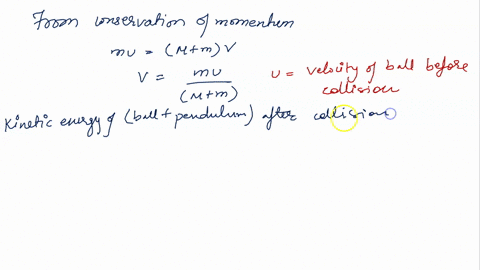 From conservation of momentum
mu = (M+m) V
V = mu / (M+m)
u = velocity of ball before
collision
Kinetic energy of (ball + pendulum) after collision